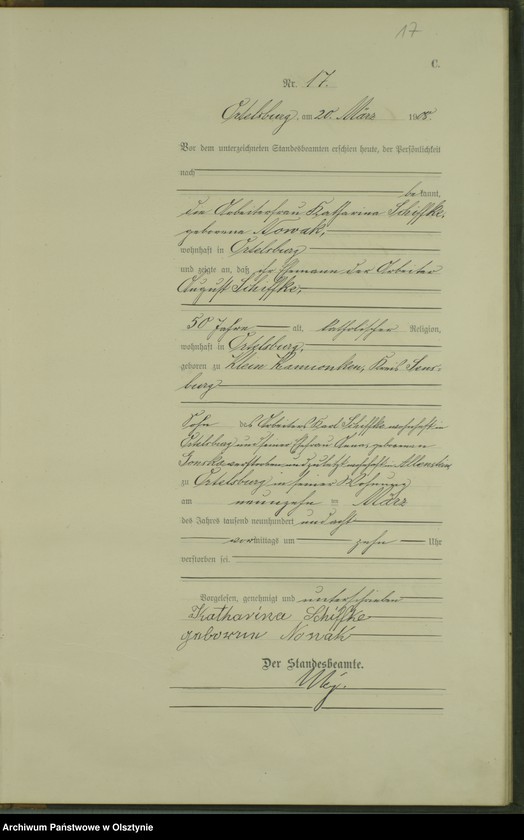 17
C.
Nr. 17.
Ortelsburg, am 20. März 1908.
Vor dem unterzeichneten Standesbeamten erschien heute, der Persönlichkeit
nach
bekannt,
die Arbeiterfrau Katharina Schiffke,
geborene Nowak,
wohnhaft in Ortelsburg
und zeigte an, daß ihr Ehemann der Arbeiter
August Schiffke,
50 Jahre alt, katholischer Religion,
wohnhaft in Ortelsburg,
geboren zu Klein Kamionken, Kreis Sens-
burg
Sohn des Arbeiters Karl Schiffke wohnhaft in
Ortelsburg und seiner Ehefrau Anna, geborenen
verstorben und zuletzt wohnhaft in Allenstein
zu Ortelsburg in seiner Wohnung
am neunzehn ten März
des Jahres tausend neunhundert und acht
vormittags um zehn Uhr
verstorben sei.
Vorgelesen, genehmigt und unterschrieben
Katharina Schiffke
geborene Nowak
Der Standesbeamte.
Archiwum Państwowe w Olsztynie